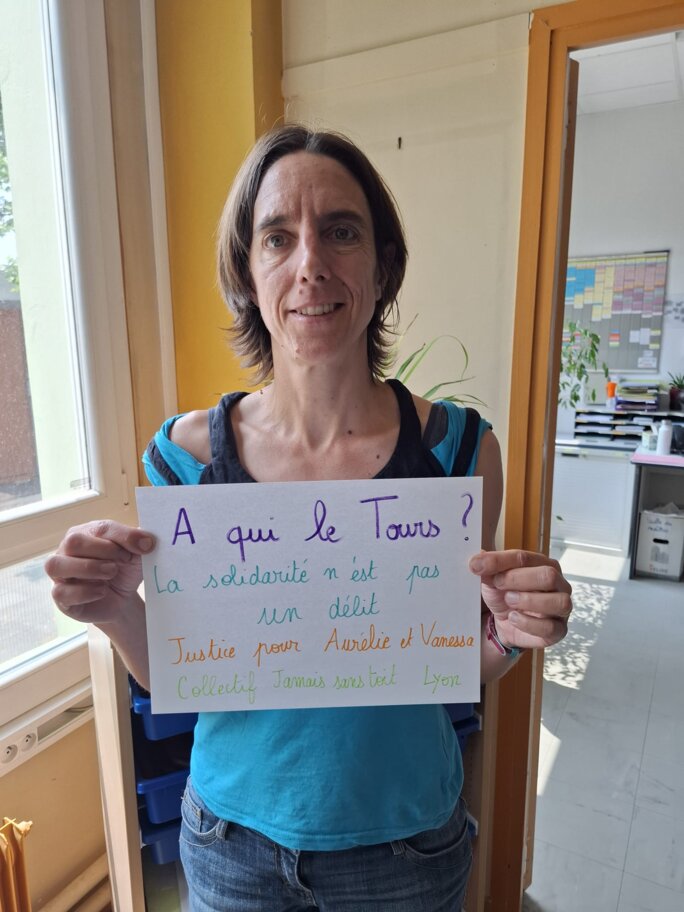 A qui le Tours ?
La solidarité n'ést pas
un délit
Justice pour Aurélie et Vanessa
Collectif Jamais sans toit Lyon